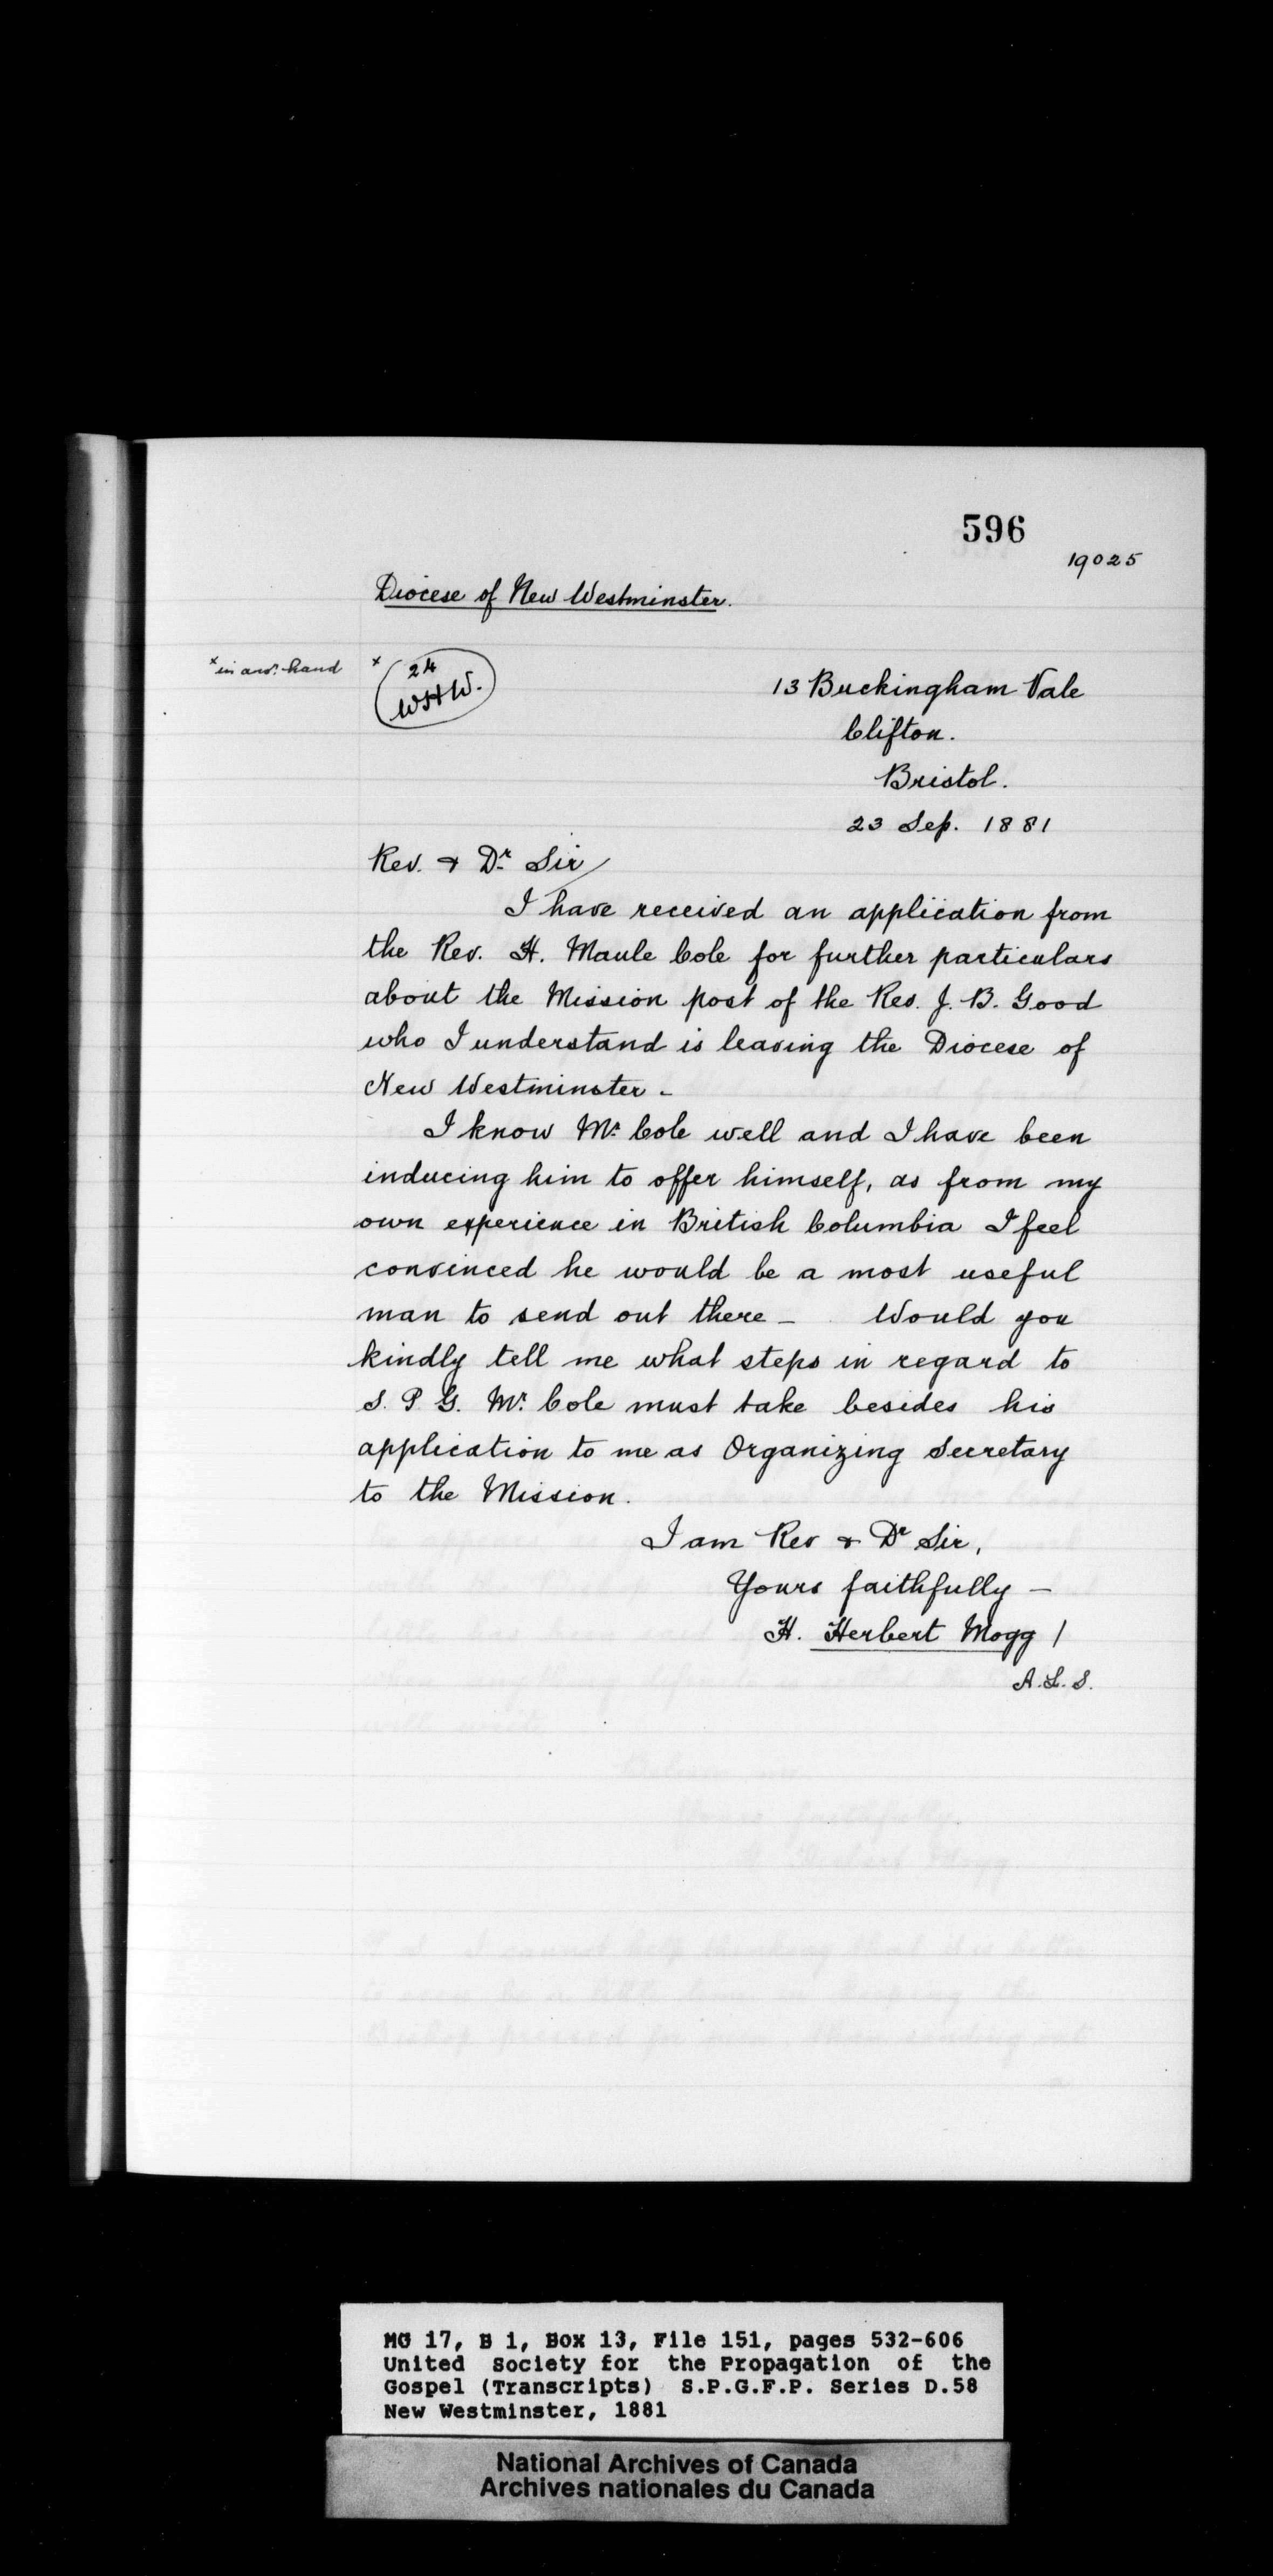 596
19025
Diocese of New Westminster.
x in anr. hand
x 24
WHW.
13 Buckingham Vale
Clifton.
Bristol.
23 Sep. 1881
Rev. & Dr Sir/
I have received an application from
the Rev. H. Maule Cole for further particulars
about the Mission post of the Rev. J. B. Good
who I understand is leaving the Diocese of
New Westminster -
I know Mr. Cole well and I have been
inducing him to offer himself, as from my
own experience in British Columbia I feel
convinced he would be a most useful
man to send out there - Would you
kindly tell me what steps in regard to
S. P G. Mr. Cole must take besides his
application to me as Organizing Secretary
to the Mission.
I am Rev & Dr Sir,
Yours faithfully -
H. Herbert Mogg /
A.L.S.
MG 17, B 1, Box 13, File 151, pages 532-606
United Society for the Propagation of the
Gospel (Transcripts) S.P.G.F.P. Series D.58
New Westminster, 1881
National Archives of Canada
Archives nationales du Canada